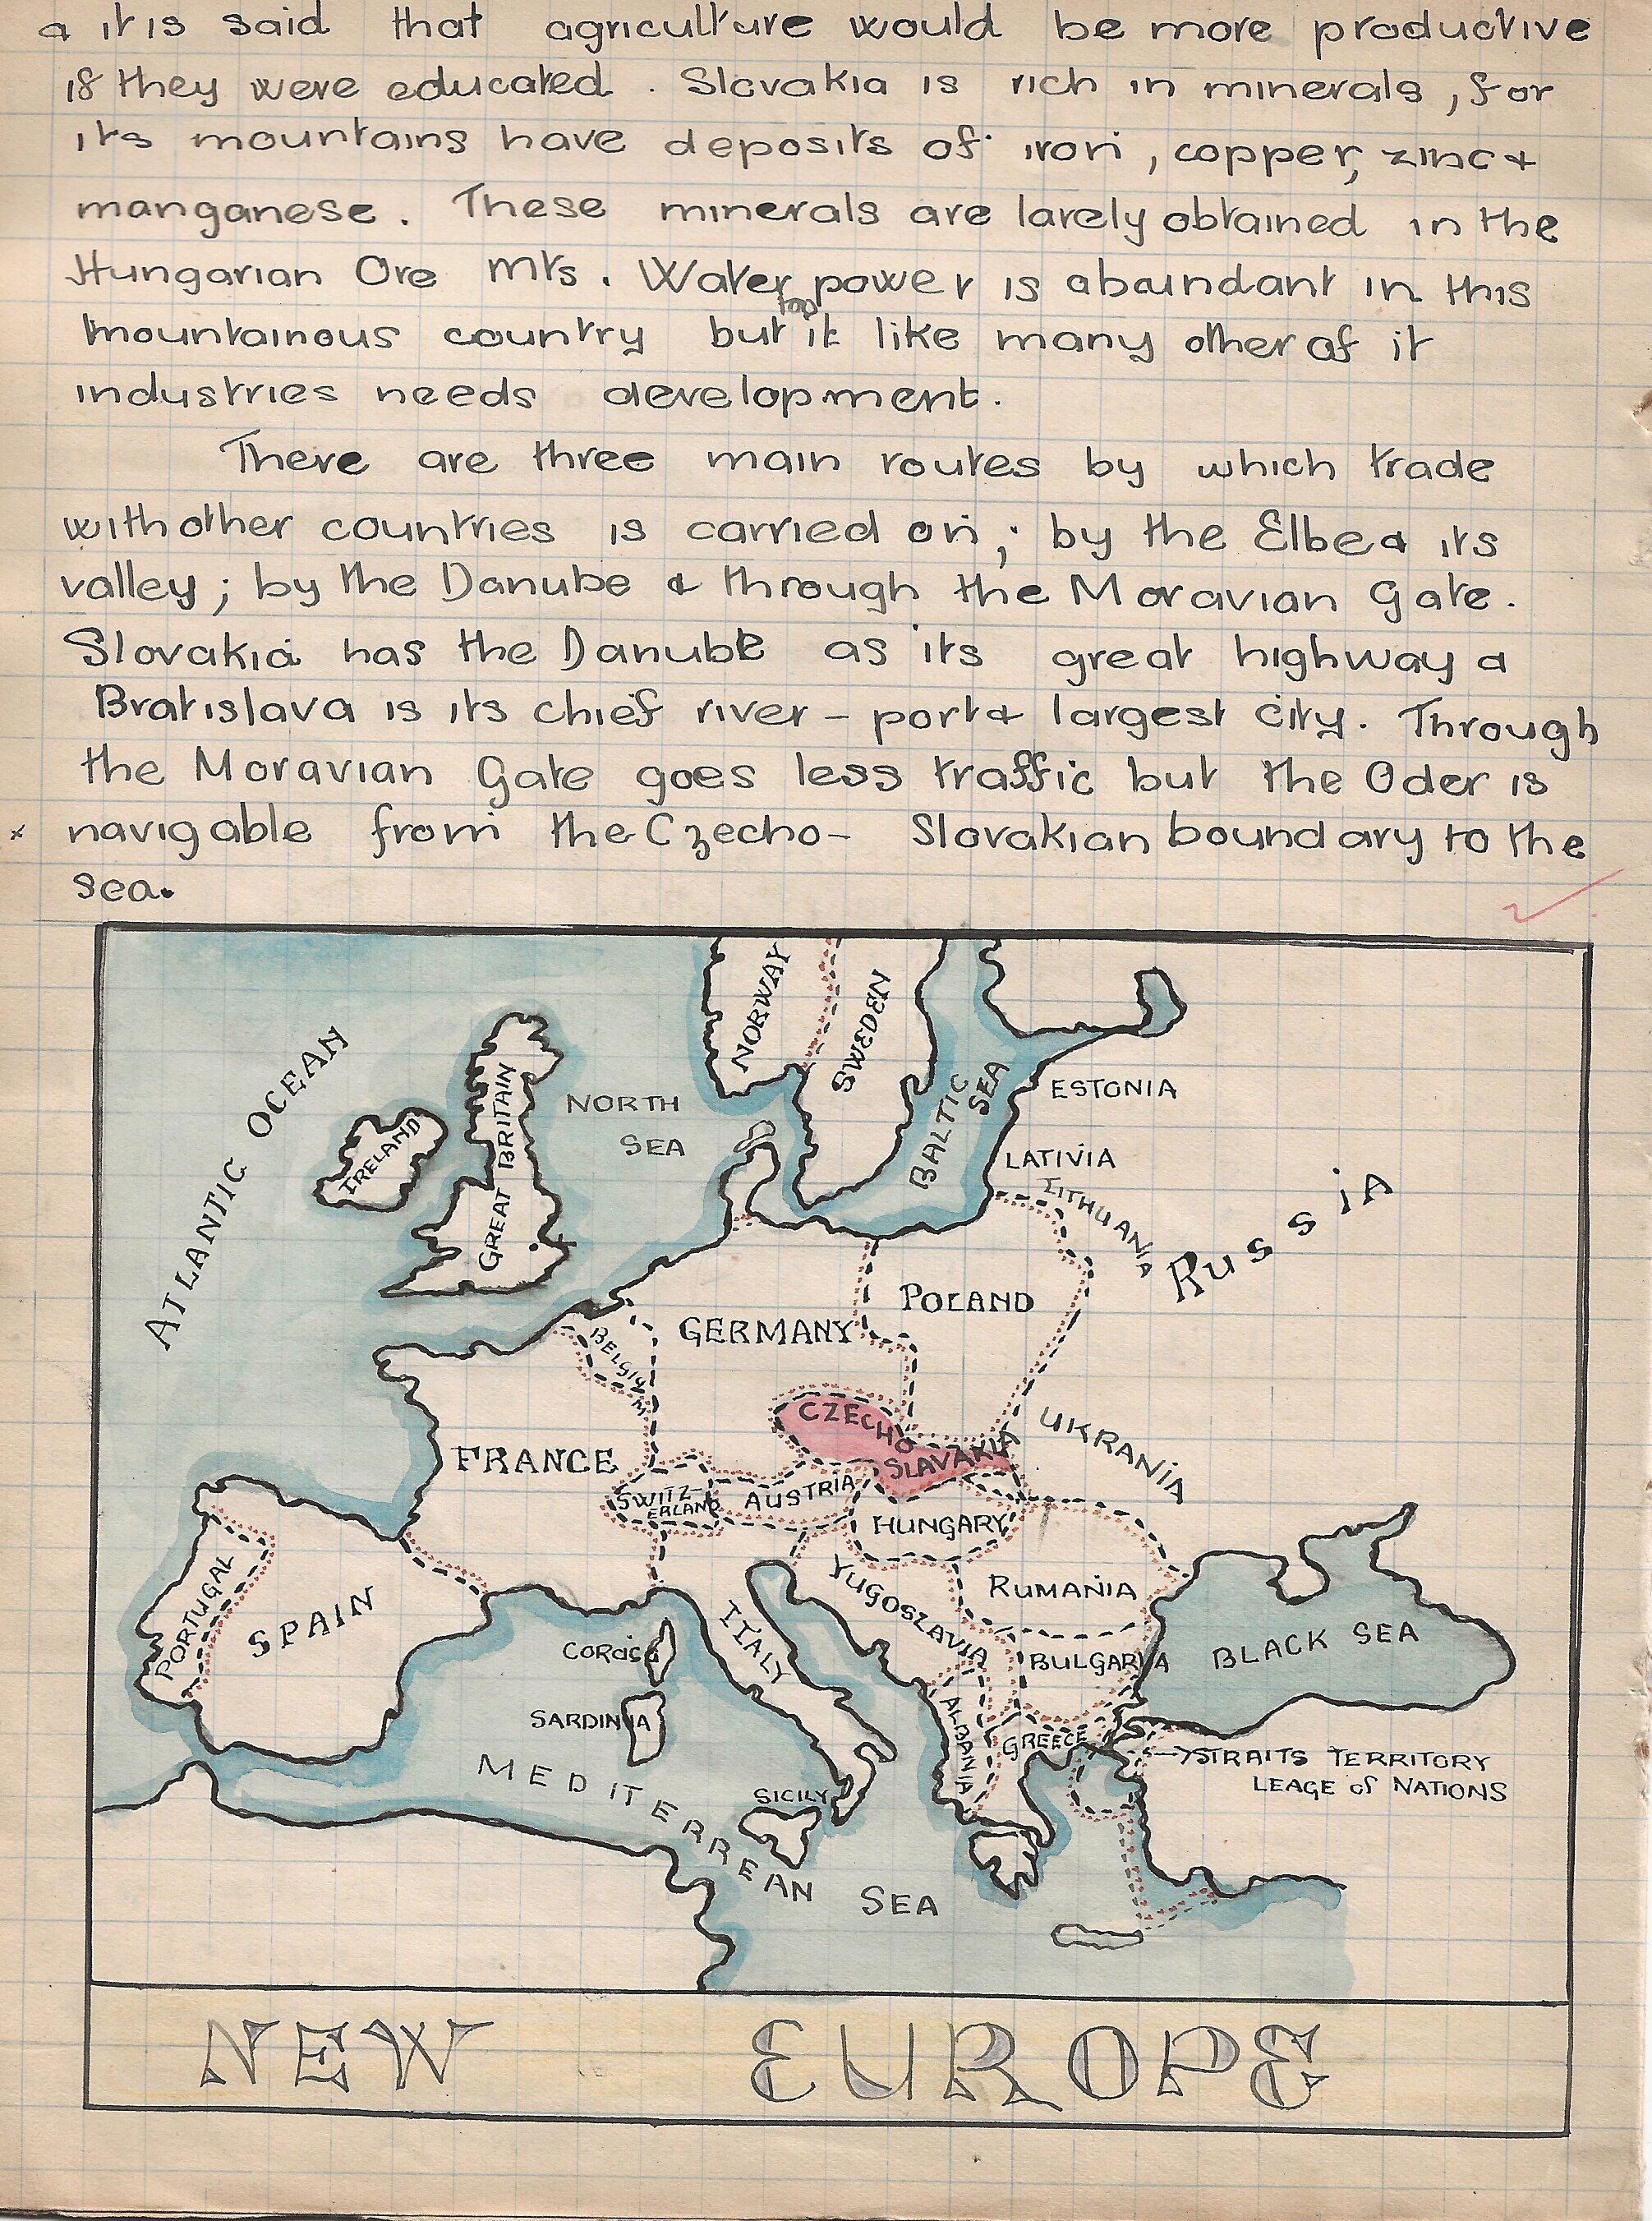 & it is said that agriculture would be more productive
if they were educated. Slovakia is rich in minerals, for
its mountains have deposits of iron, copper, zinc &
manganese. These minerals are larely obtained in the
Hungarian Ore Mts. Water power is abundant in this
mountainous country but it like many other of it
industries needs development.
There are three main routes by which trade
with other countries is carried on; by the Elbe & its
valley; by the Danube & through the Moravian Gate.
Slovakia has the Danube as its great highway &
Bratislava is its chief river-port & largest city. Through
the Moravian Gate goes less traffic but the Oder is
x navigable from the Czecho-Slovakian boundary to the
sea.
NORWAY
SWEDEN
ATLANTIC OCEAN
GREAT BRITAIN
IRELAND
NORTH
SEA
BALTIC
SEA
ESTONIA
LATIVIA
LITHUANIA
RUSSIA
POLAND
GERMANY
BELGIUM
CZECHO
SLAVAKIA
UKRANIA
FRANCE
SWITZ-
ERLAND
AUSTRIA
HUNGARY
PORTUGAL
SPAIN
YUGOSLAVIA
RUMANIA
ITALY
CORSICA
BLACK SEA
BULGARIA
SARDINIA
ALBANIA
GREECE
STRAITS TERRITORY
LEAGE of NATIONS
SICILY
MEDITERREAN SEA
NEW EUROPE